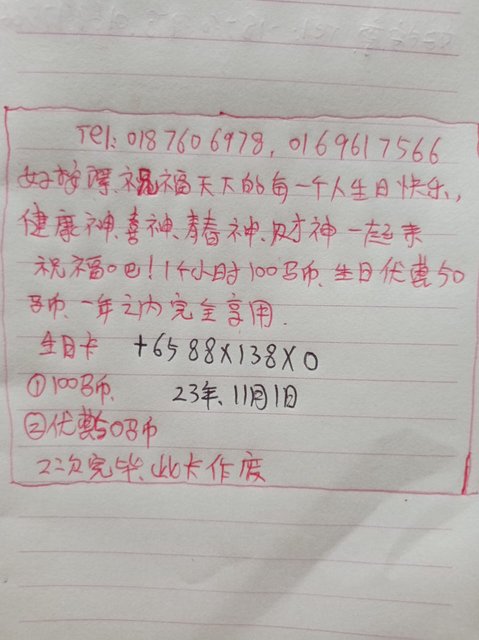 Tel: 018 760 6978, 0169617566
好按摩.祝福天下的每一个人生日快乐,
健康神、喜神、青春神、财神一起来
祝福吧!1个小时100马币.生日优惠50
马币.一年之内完全享用.
生日卡 +6588X138X0
①100马币. 23年.11月1日
②优惠50马币
2二次完毕、此卡作废